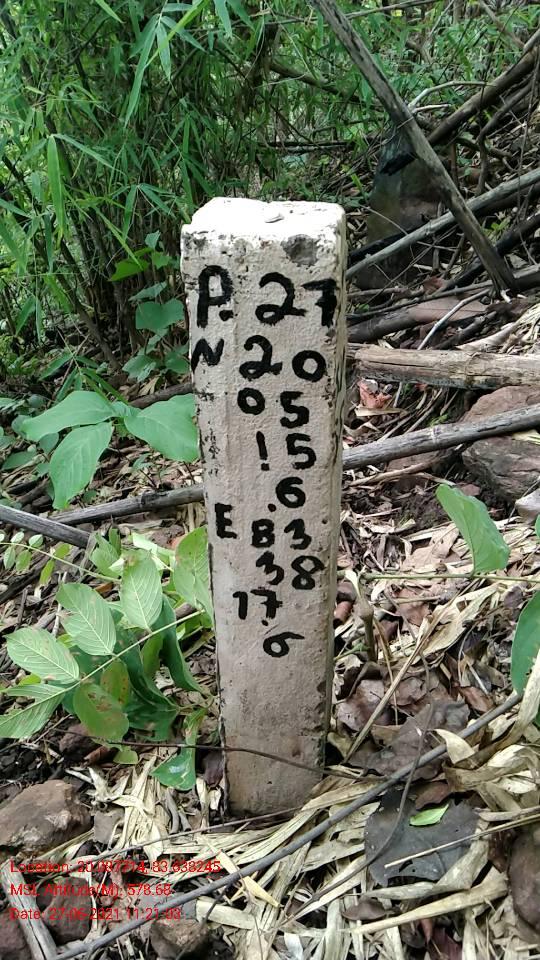 P. 27
N 20
05
! 5
.6
E 83
38
17.
6
Location: 20.097214, 83.638245
MSL Altitude(M): 578.68
Date: 27-06-2021 11:21:03